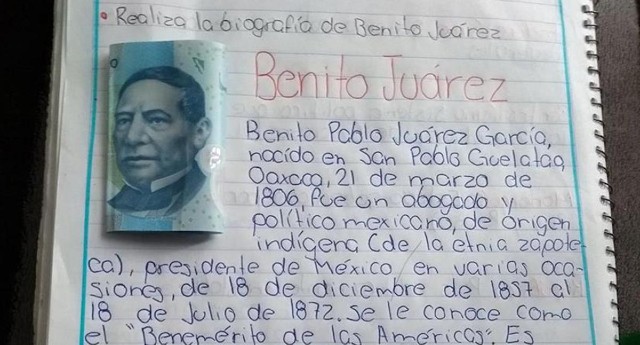 • Realiza la biografía de Benito Juárez
Benito Juárez
Benito Pablo Juárez García,
nacido en San Pablo Guelatao,
Oaxaca, 21 de marzo de
1806, fue un abogado y
político mexicano, de origen
indígena (de la etnia zapote-
ca), presidente de México en varias oca-
siones, de 18 de diciembre de 1857 al
18 de Julio de 1872. Se le conoce como
el "Benemérito de las Américas". Es